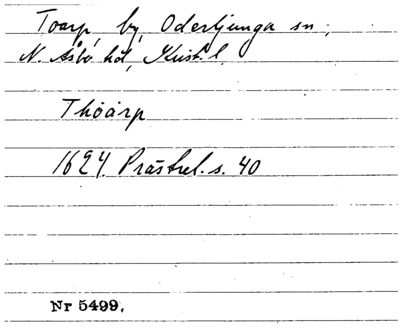 Toarp, by, Oderljunga sn.,
N. Åsbo hd, Krist. l.
Thöärp
1624. Prästrel. s. 40
Nr 5499.